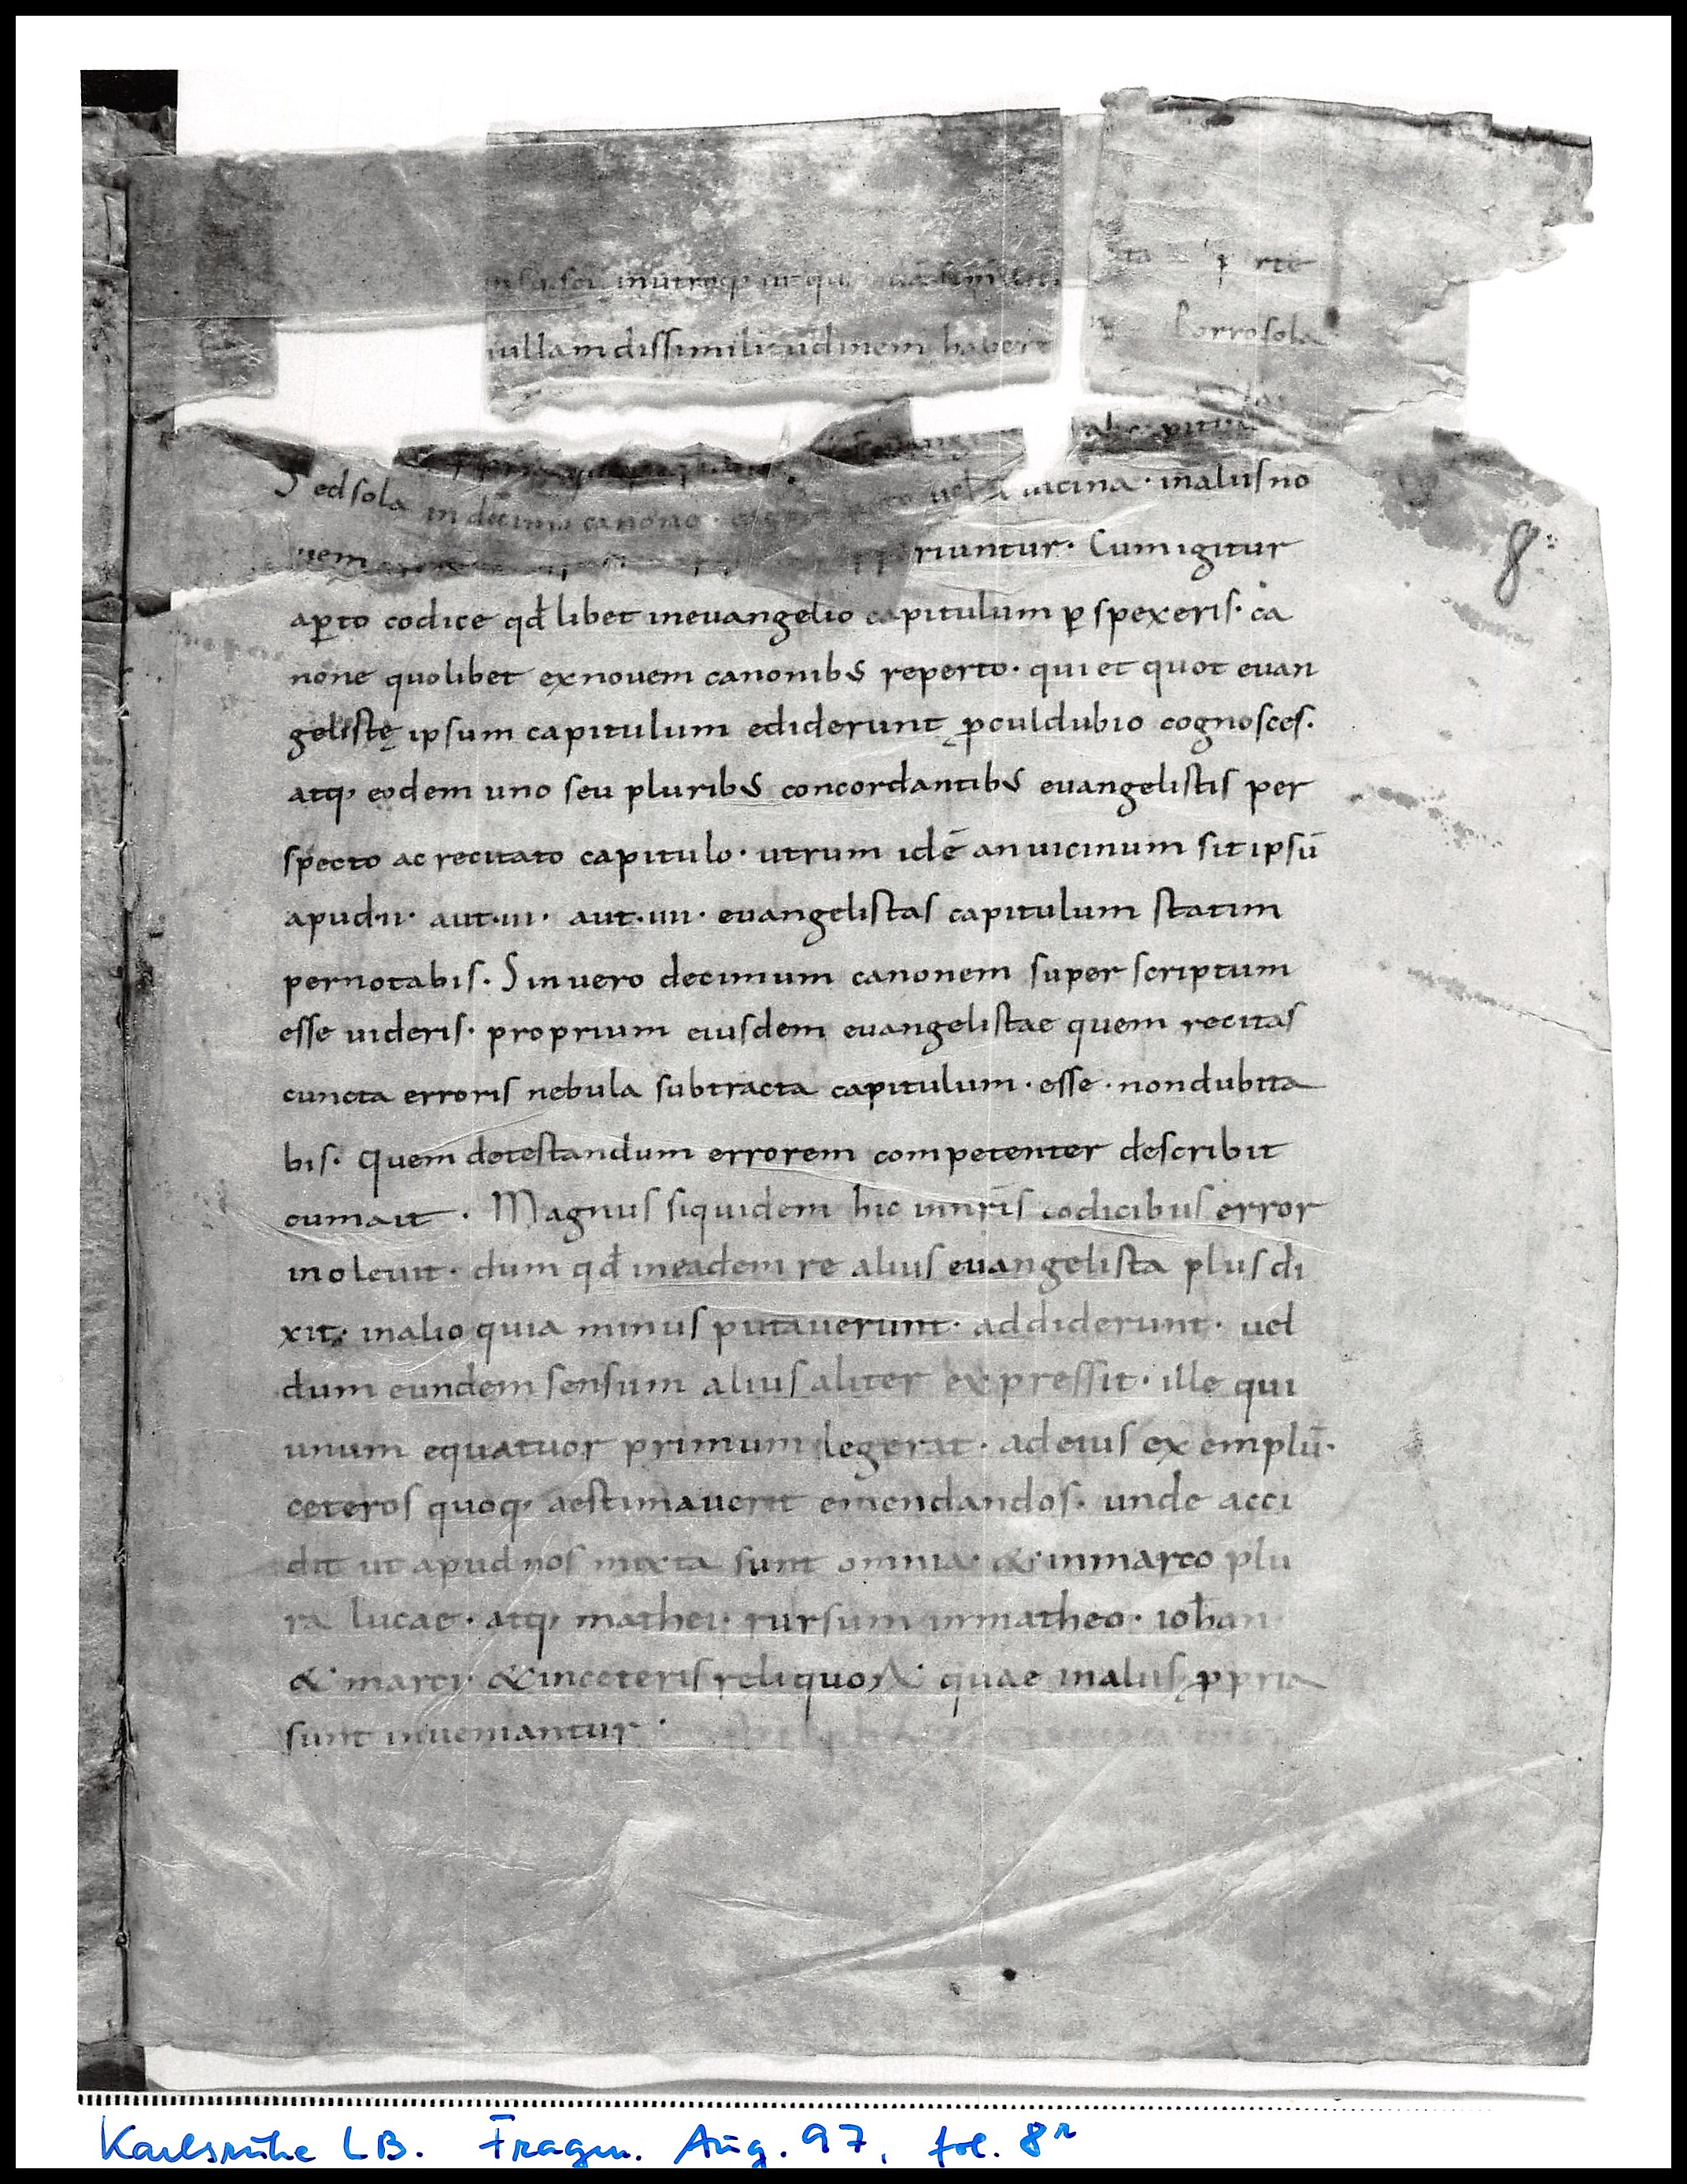 inutroq;
nullam dissimilitudinem habere Porro sola
Sed sola in decimo canone uicina · inaliis no
uem riuntur · Cum igitur
aꝑto codice qđ libet ineuangelio capitulum ꝑ spexeris · ca
none quolibet exnouem canonibꝰ reperto · qui et quot euan
gelistę ipsum capitulum ediderunt ꝓculdubio cognosces ·
atq; eodem uno seu pluribꝰ concordantibꝰ euangelistis per
specto ac recitato capitulo · utrum idē an uicinum sit ipsū
apud ·ii· aut ·iii· aut ·iiii· euangelistas capitulum statim
pernotabis · Sin uero decimum canonem super scriptum
esse uideris · proprium eiusdem euangelistae quem recitas
cuncta erroris nebula subtracta capitulum · esse · non dubita
bis · Quem detestandum errorem competenter describit
cum ait · Magnus siquidem hic innr̄is codicibus error
inoleuit · dum qđ ineadem re alius euangelista plus di
xit · inalio quia minus putauerunt · addiderunt · uel
dum eundem sensum alius aliter expressit · ille qui
unum equatuor primum legerat · adeius exemplū ·
ceteros quoq; aestimauerit emendandos · unde acci
dit ut apud nos mixta sunt omnia · & inmarco plu
ra lucae · atq; mathei · rursum inmatheo · iohan
& marci · & inceteris reliquoꝝ · quae inaliis ꝓpria
sunt inueniantur ·
8
Karlsruhe LB. Fragm. Aug. 97, fol. 8r